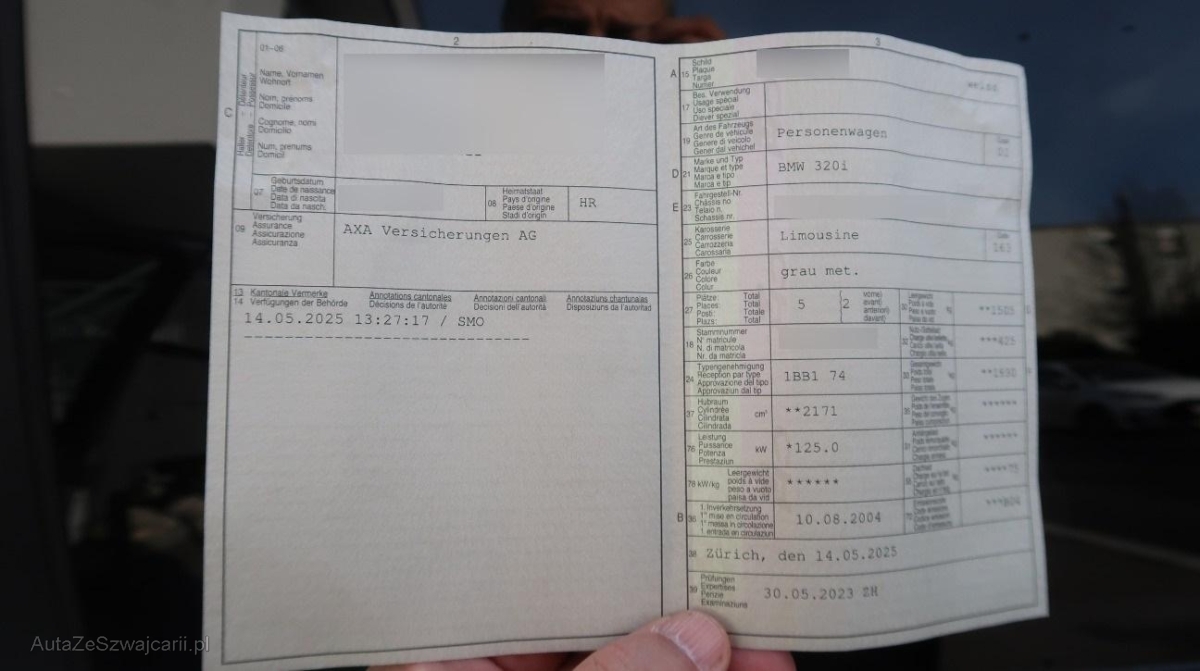 2
01-06
C
Halter - Détenteur
Detentore - Possessur
Name, Vornamen
Wohnort
Nom, prénoms
Domicile
Cognome, nomi
Domicilio
Num, prenums
Domicil
--
07
Geburtsdatum
Date de naissance
Data di nascita
Data da nasch.
08
Heimatstaat
Pays d'origine
Paese d'origine
Stadi d'origin
HR
09
Versicherung
Assurance
Assicurazione
Assicuranza
AXA Versicherungen AG
13
14
Kantonale Vermerke
Verfügungen der Behörde
Annotations cantonales
Décisions de l'autorité
Annotazioni cantonali
Decisioni dell'autorità
Annotaziuns chantunalas
Disposiziuns da l'autoritad
14.05.2025 13:27:17 / SMO
-----------------------------
3
A
15
Schild
Plaque
Targa
Numer
weiss
17
Bes. Verwendung
Usage spécial
Uso speciale
Diever spezial
19
Art des Fahrzeugs
Genre de véhicule
Genere di veicolo
Gener dal vehichel
Personenwagen
D
21
Marke und Typ
Marque et type
Marca e tipo
Marca e tip
BMW 320i
E
23
Fahrgestell-Nr.
Châssis no
Telaio n.
Schassis nr.
25
Karosserie
Carrosserie
Carrozzeria
Carossaria
Limousine
26
Farbe
Couleur
Colore
Colur
grau met.
27
Plätze: Total
Places: Total
Posti: Totale
Plazs: Total
5
2
vorne)
avant)
anteriori)
davant)
18
Stammnummer
N° matricule
N. di matricola
Nr. da matricla
24
Typengenehmigung
Réception par type
Approvazione del tipo
Approvaziun dal tip
1BB1 74
37
Hubraum
Cylindrée
Cilindrata
Cilindrada
cm³
**2171
76
Leistung
Puissance
Potenza
Prestaziun
kW
*125.0
78 kW/kg
Leergewicht
poids à vide
peso a vuoto
paisa da vid
******
B
36
1. Inverkehrsetzung
1re mise en circulation
1a messa in circolazione
1. entrada en circulaziun
10.08.2004
38
Zürich, den 14.05.2025
39
Prüfungen
Expertises
Perizie
Examinaziuns
30.05.2023 ZH
AutaZeSzwajcarii.pl